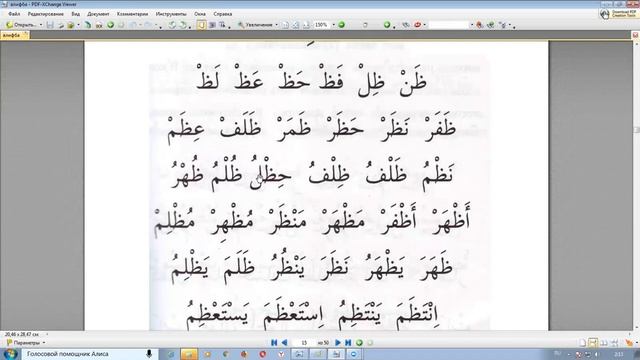 алифба - PDF-XChange Viewer
Файл Правка Вид Документ Комментарии Инструменты Окно Справка
Открыть... Увеличение 150%
Download PDF Creation Tools
алифба
ظَنْ ظِلْ فَظْ حَظْ عَظْ لَظْ
ظَفَرْ نَظَرْ حَظَرْ ظَمَرْ ظَلَفْ عِظَمْ
نَظْمُ ظَلْفُ ظِلْفُ حِظْلُ ظُلْمُ ظُهْرُ
أَظْهَرْ أَظْفَرْ مَظْهَرْ مَنْظَرْ مُظْهِرْ مُظْلِمْ
ظَهَرَ يَظْهَرُ نَظَرَ يَنْظُرُ ظَلَمَ يَظْلِمُ
اِنْتَظَمَ يَنْتَظِمُ اِسْتَعْظَمَ يَسْتَعْظِمُ
20,46 x 28,47 см
Параметры 15 из 50
Голосовой помощник Алиса
RU 2:15